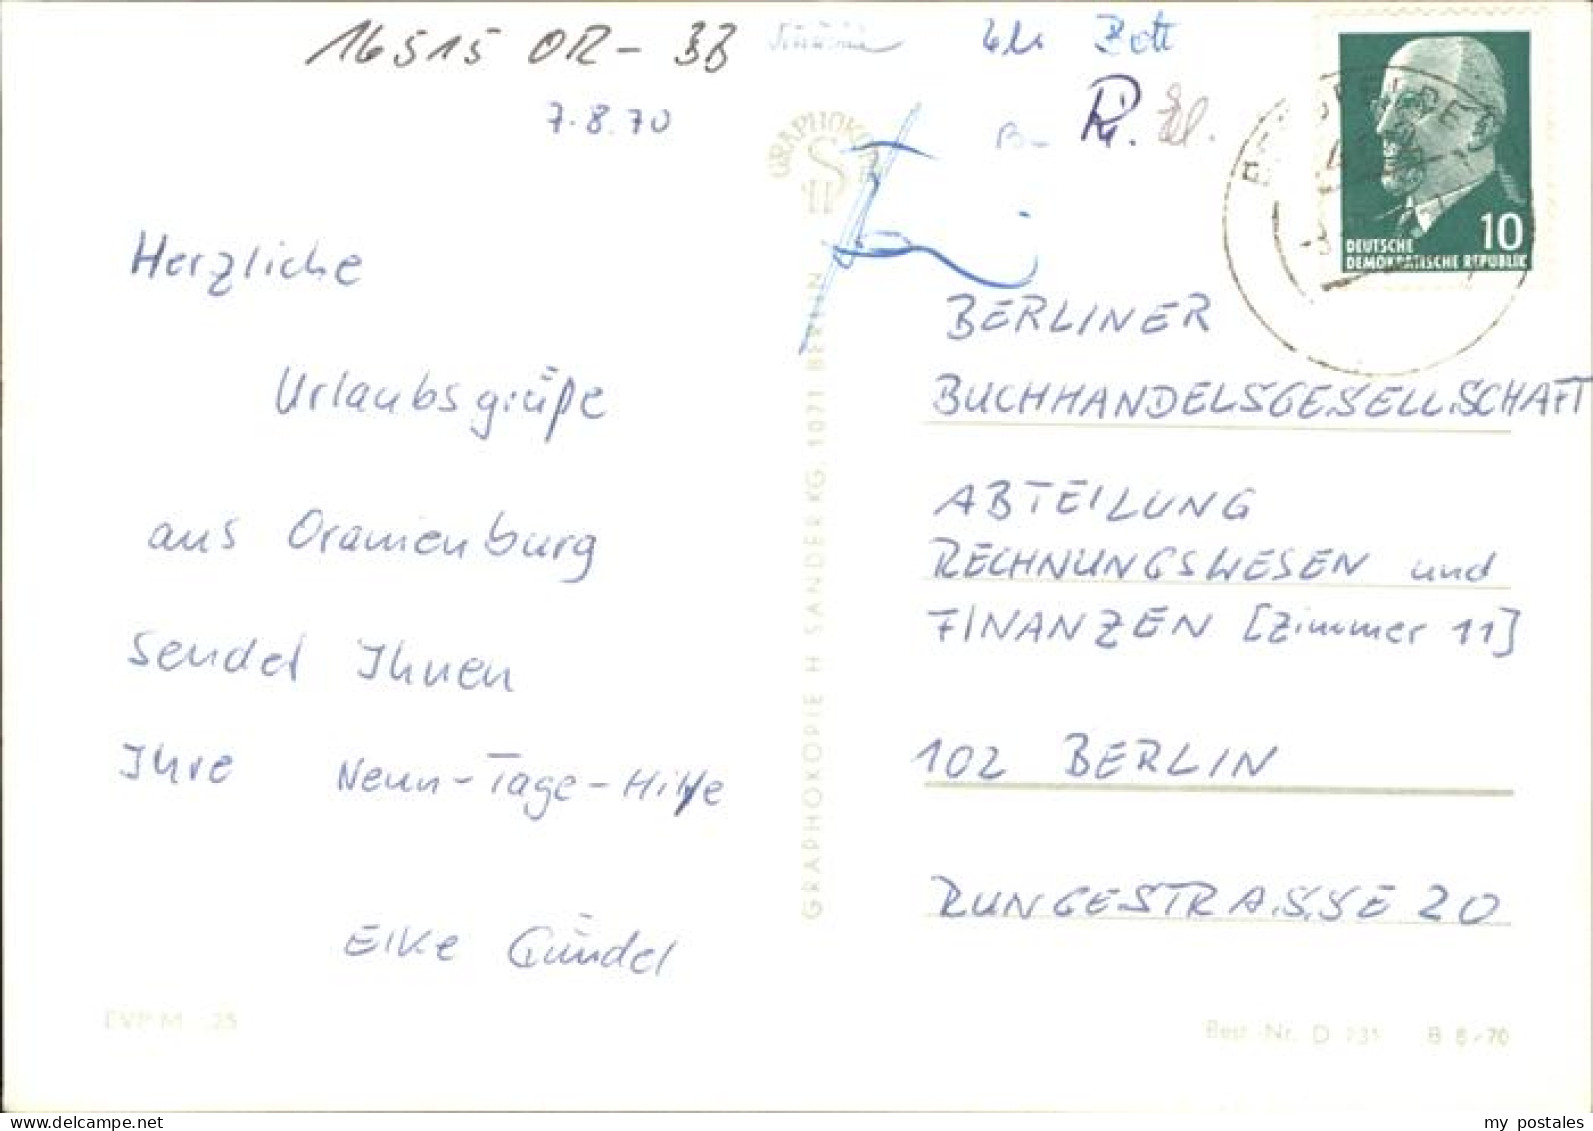 16515 OR - BB
7.8.70
GRAPHOKOPIE
H
S
10
DEUTSCHE
DEMOKRATISCHE REPUBLIK
Herzliche
Urlaubsgrüße
aus Oranienburg
sendet Ihnen
Ihre Neun-Tage-Hilfe
Elke Gündel
EVP M -,25
GRAPHOKOPIE H SANDER KG, 1071 BERLIN
BERLINER
BUCHHANDELSGESELLSCHAFT
ABTEILUNG
RECHNUNGSWESEN und
FINANZEN [Zimmer 11]
102 BERLIN
RUNGESTRASSE 20
Best.-Nr. D 731 B 6/70
delcampe.net
my postales